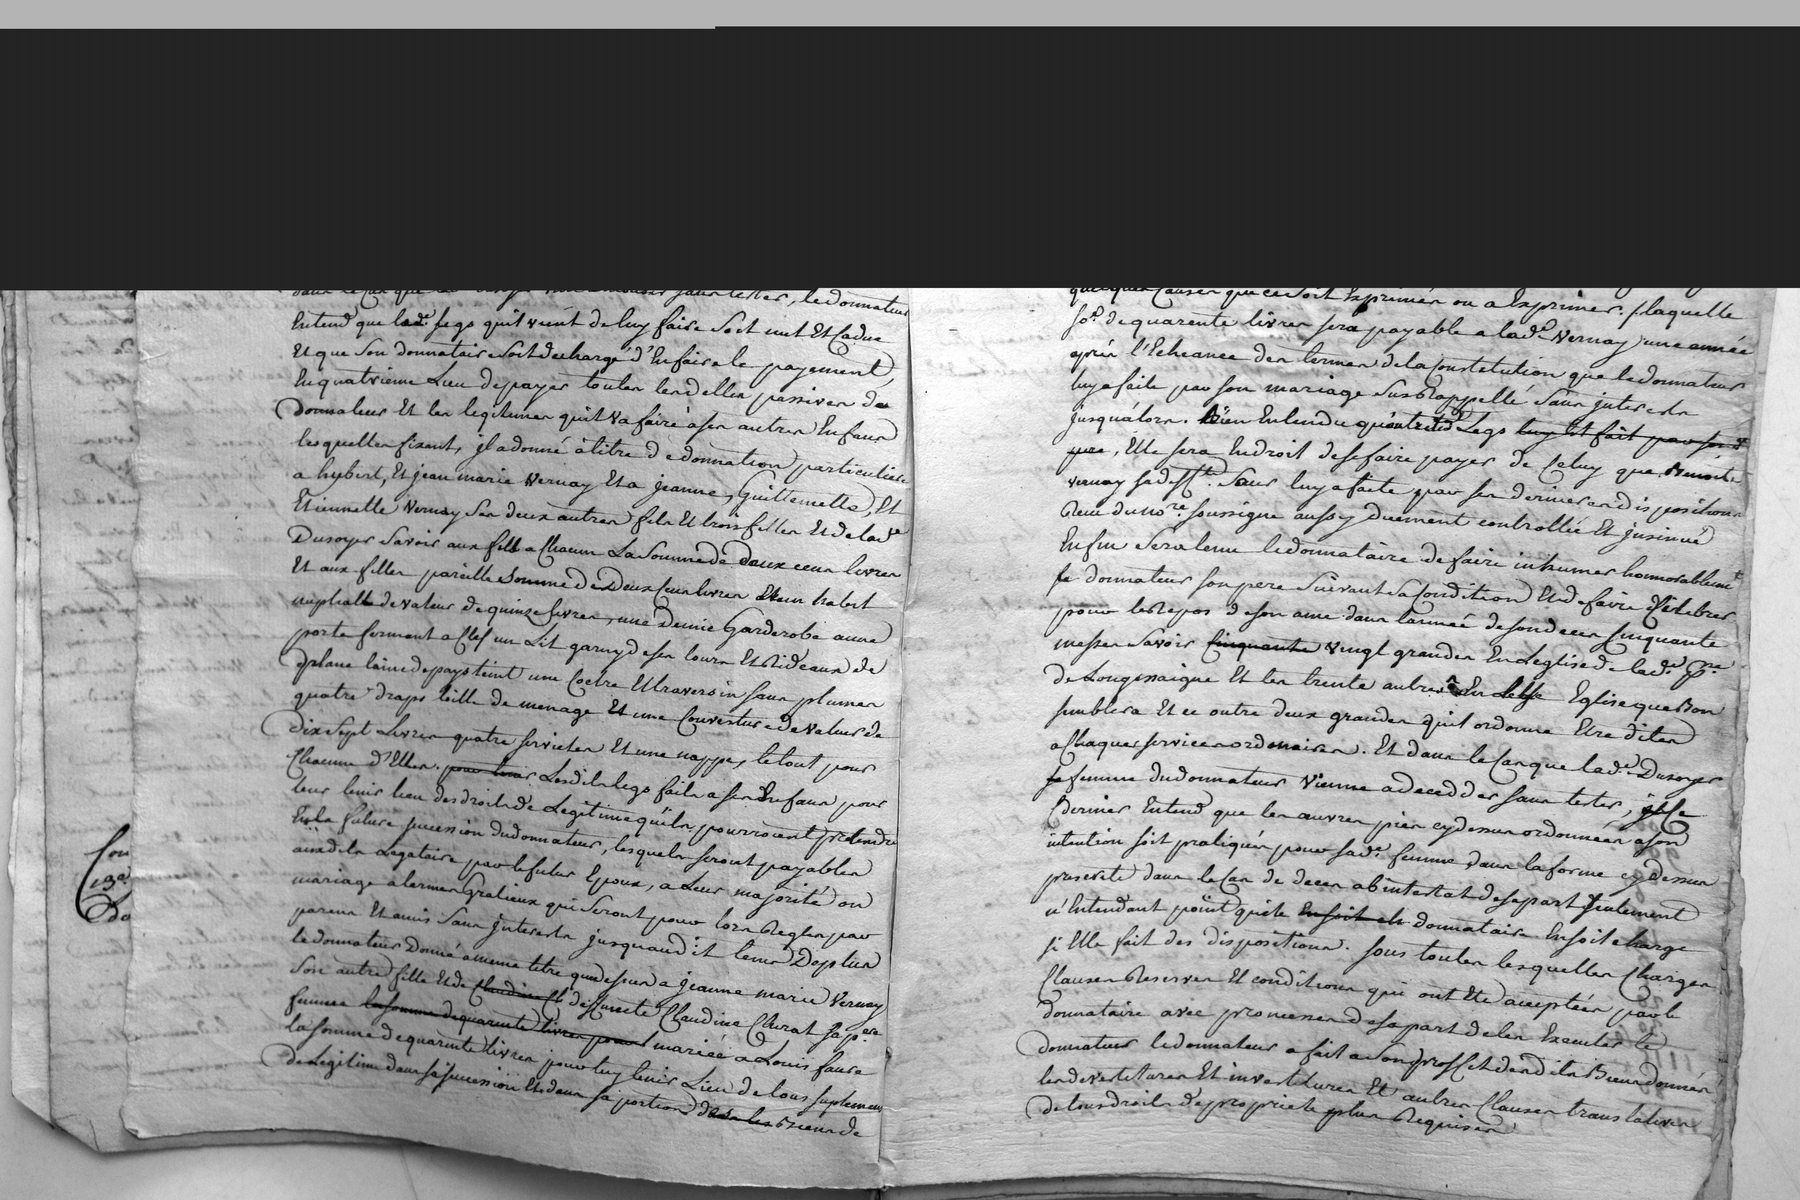 Entend que lad.e legs qu'il vient de luy faire soit nul Et Caduc
Et que son donnataire soit decharge d'En faire le payement,
En quatrieme Lieu de payer toutes les dettes passives du
Donnateur Et les legitimes qu'il va faire a ses autres Enfans
lesquelles fixant, jl a donné à titre de donnation particuliere
a hubert, Et jean marie Vernay Et a jeanne, Guillemette, Et
Etiennette Vernay ses deux autres fils Et trois filles Et de lad.e
Dusoyer savoir aux fils a Chacun La somme de deux cens livres
Et aux filles pareille somme de Deux Cens livres Et un habit
nuphall de valeur de quinze livres, une Demie Garderobe a une
porte fermant a Clef un Lit garny de ses tours Et Rideaux de
laine de pays teint une Coetre Et traversin sans plumes
quatre draps toille de menage Et une Couverture de valeur de
dix sept Livres quatre serviettes Et une nappe, le tout pour
Chacune d'Elles. pour tenir Lesdits legs faits a ses Enfans pour
leur tenir lieu des droits de Legitime qu'ils pourroient pretendre
En la future succession du donnateur, lesquels seront payables
auxdits Legataire par le futur Epoux, a Leur majorité ou
mariage a termes Gratieux qui seront pour lors Regles par
parens Et amis sans jnterests jusqu'audit tems De plus
le donnateur Donné a meme titre que dessus a jeanne marie Vernay
son autre fille Et de Claudine Ch deffunte Claudine Churat sa p.ere
femme la somme de quarente livres pour mariée a Louis faure
la somme de quarente livres pour luy tenir Lieu de tous suplemens
de Legitime dans sa succession Et dans sa portion dans les Biens de
Con
13.e
Do
quelques Causes que ce soit Exprimés ou a Exprimer. / laquelle
so.e de quarente livres sera payable a lad.e Vernay une année
après l'Echeance des termes de la Constitution que le donnateur
luy a faite par son mariage susrappellé sans jnterests
jusqu'alors. Bien Entendu qu'outre led. Legs luy Et fait par son
pere, Elle sera En droit de se faire payer de Celuy que Benoite
Vernay sa deff.te Sœur luy a faite par ses dernieres dispositions
Recu du no.re soussigné aussy Duement controllée Et jnsinué
Enfin sera tenu le donnataire de faire inhumer honnorablem.t
le donnateur son pere suivant sa Condition Et de faire Célébrer
pour le Repos de son ame dans l'année de son deces Cinquante
messes savoir Cinquante vingt grandes En L'eglise de lad.e p.sse
de Longessaigne Et les trente autres En Lelise Eglise que Bon
semblera Et ce outre deux grandes qu'il ordonne Etre dites
a Chaques services ordonaires. Et dans le Cas que lad.e Dusoyer
femme du donnateur vienne a decedder sans tester, jl Ce
Dernier Entend que les œuvres pies cy dessus ordonnées a son
intention soit pratiqués pour sad.e femme dans la forme cy dessus
prescrite dans le Cas de deces abintestat de sa part seulement
n'Entendant point que le Ensoit ch donnataire En soit charge
si Elle fait des dispositions. Sous toutes lesquelles Charges
Clauses Reserves Et conditions qui ont Eté acceptées par le
donnataire avec promesses de sa part de les Executer le
donnateur le donnateur a fait a son proffit desdits Biens donnés
les devestitures Et investitures Et autres Clauses translatives
de tous droits de propriete plus Requises